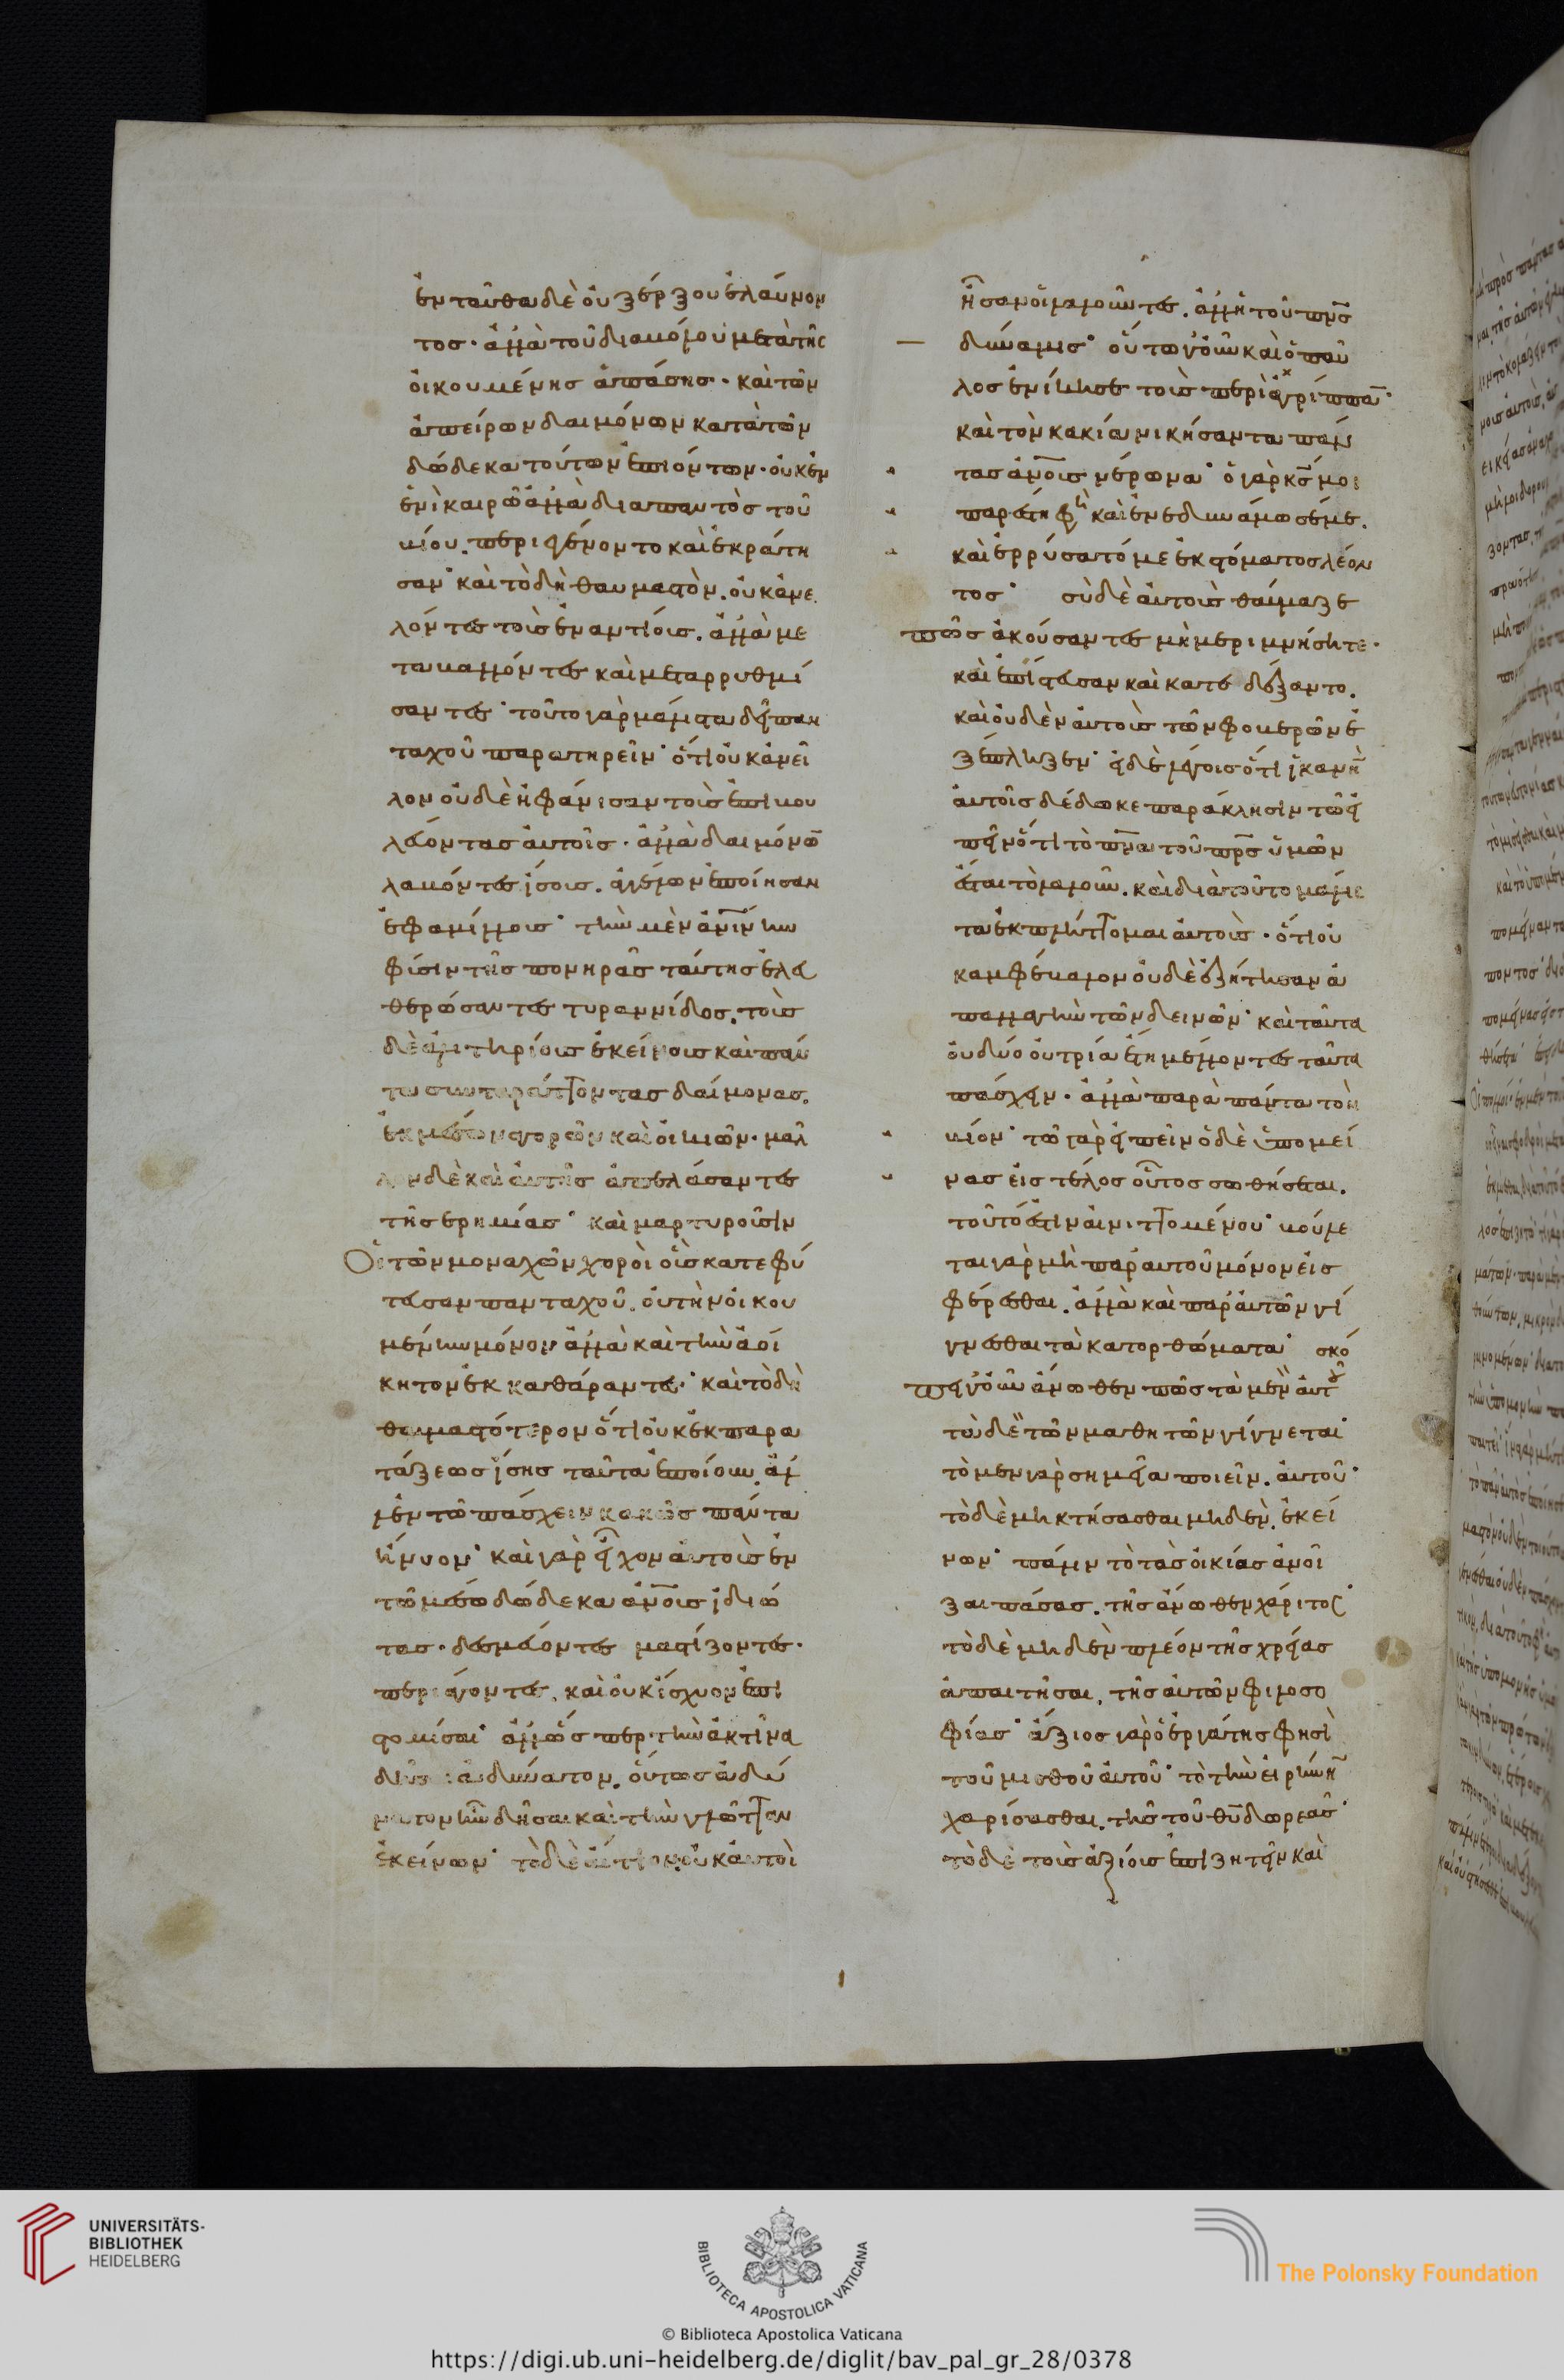 ἐνταῦθα δὲ οὐ ξέρξου ἐλαύνον
τος· ἀλλὰ τοῦ διαβόλου μετὰ τῆς
οἰκουμένης ἁπάσης· καὶ τῶν
ἀπείρων δαιμόνων κατὰ τῶν
δώδεκα τούτων ἐπιόντων· οὐκ ἐν
ἑνὶ καιρῶ ἀλλὰ διαπαντὸς τοῦ
βίου. περιεγένοντο καὶ ἐκράτη
σαν· καὶ τὸ δὴ θαυμαστὸν. οὐκ ἀνε
λόντες τοὺς ἐναντίους. ἀλλὰ με
ταβαλόντες καὶ μεταρρυθμί
σαντες· τοῦτο γὰρ μάλιστα δεῖ παν
ταχοῦ παρατηρεῖν· ὅτι οὐκ ἀνεῖ
λον οὐδὲ ἠφάνισαν τοὺς ἐπιβου
λεύοντας αὐτοῖς· ἀλλὰ δαιμόνων
λαβόντες ἴσους. ἀγγέλων ἐποίησαν
ἐφαμίλλους· τὴν μὲν ἀνίνην
φύσιν τῆς πονηρᾶς ταύτης ἐλευ
θερώσαντες τυραννίδος. τοὺς
δὲ ἀλιτηρίους ἐκείνους καὶ πάν
τα συνταράττοντας δαίμονας.
ἐκ μέσων ἀγορῶν καὶ οἰκιῶν· μᾶλ
λον δὲ καὶ αὐτῆς ἀπελάσαντες
τῆς ἐρημίας· καὶ μαρτυροῦσιν
Οἱ τῶν μοναχῶν χοροὶ οὓς κατεφύ
τευσαν πανταχοῦ. οὐ τὴν οἰκου
μένην μόνον ἀλλὰ καὶ τὴν ἀοί
κητον ἐκκαθάραντες· καὶ τὸ δὴ
θαυμαστότερον ὅτι οὐκ ἐκ παρα
τάξεως ἴσης ταῦτα ἐποίουν. ἀλ
λ' ἐν τῶ πάσχειν κακῶς πάντα
ἤνυον· καὶ γὰρ εἶχον αὐτοὺς ἐν
τῶ μέσω δώδεκα ἀνοις ἰδιώ
τας· δεσμεύοντες μαστίζοντες·
περιάγοντες. καὶ οὐκ ἴσχυον ἐπι
στομίσαι· ἀλλ' ὥσπερ τὴν ἀκτῖνα
δῆσαι ἀδύνατον. οὕτως ἀδύ
νατον ἦν δῆσαι καὶ τὴν γλῶτταν
ἐκείνων· τὸ δὲ αἴτιον. οὐκ αὐτοὶ
ἦσαν οἱ λαλοῦντες. ἀλλ' ἡ τοῦ πνς
δύναμις· οὕτω γοῦν καὶ ὁ παῦ
λος ἐνίκησε τοὺς περὶ ἀγρίππαν·
καὶ τὸν κακία νικήσαντα πάν
τας ἀνους νέρωνα· ὁ γὰρ κς μοι
παρέστη φη καὶ ἐνεδυνάμωσέ με.
καὶ ἐρρύσατό με ἐκ στόματος λέον
τος· σὺ δὲ αὐτοὺς θαύμαζε
πῶς ἀκούσαντες μὴ μεριμνήσητε·
καὶ ἐπίστευσαν καὶ κατεδέξαντο.
καὶ οὐδὲν αὐτοὺς τῶν φοβερῶν ἐ
ξέπληξεν· εἰ δὲ λέγοις ὅτι ἱκανὴν
αὐτοῖς δέδωκε παράκλησιν τῶ εἰ
πεῖν ὅτι τὸ πνα τοῦ πρς ὑμῶν
ἔσται τὸ λαλοῦν. καὶ διὰ τοῦτο μάλισ
τα ἐκπλήττομαι αὐτοὺς· ὅτι οὐ
κ ἀμφέβαλον οὐδὲ ἐζήτησαν ἀ
παλλαγὴν τῶν δεινῶν· καὶ ταῦτα
οὐ δύο οὐ τρία ἔτη μέλλοντες ταῦτα
πάσχειν· ἀλλὰ παρὰ πάντα τὸν
βίον· τῶ γὰρ εἰπεῖν ὁ δὲ ὑπομεί
νας εἰς τέλος οὗτος σωθήσεται.
τοῦτό ἐστιν αἰνιττομένου· βούλε
ται γὰρ μὴ παρ' αὐτοῦ μόνον εἰσ
φέρεσθαι. ἀλλὰ καὶ παρ' αὐτῶν γί
γνεσθαι τὰ κατορθώματα· σκό
πει γοῦν ἄνωθεν πῶς τὰ μὲν αὐτοῦ
τὰ δὲ τῶν μαθητῶν γίνεται·
τὸ μὲν γὰρ σημεῖα ποιεῖν. αὐτοῦ·
τὸ δὲ μὴ κτήσασθαι μηδὲν. ἐκεί
νων· πάλιν τὸ τὰς οἰκίας ἀνοῖ
ξαι πάσας. τῆς ἄνωθεν χάριτος·
τὸ δὲ μηδὲν πλέον τῆς χρείας
ἀπαιτῆσαι. τῆς αὐτῶν φιλοσο
φίας· ἄξιος γὰρ ὁ ἐργάτης φησὶ
τοῦ μισθοῦ αὐτοῦ· τὸ τὴν εἰρήνην
χαρίσασθαι. τῆς τοῦ θυ δωρεᾶς·
τὸ δὲ τοὺς ἀξίους ἐπιζητεῖν καὶ
UNIVERSITÄTS-
BIBLIOTHEK
HEIDELBERG
BIBLIOTECA APOSTOLICA VATICANA
© Biblioteca Apostolica Vaticana
The Polonsky Foundation
https://digi.ub.uni-heidelberg.de/diglit/bav_pal_gr_28/0378